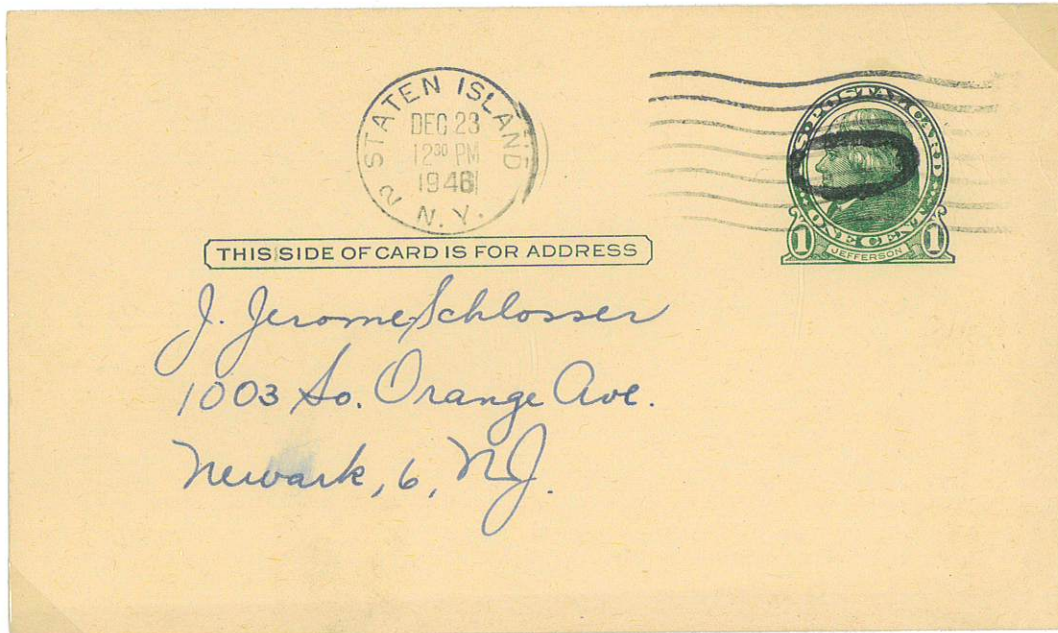 2 STATEN ISLAND
DEC 23
12³⁰ PM
1946
N.Y.
U.S. POSTAL CARD
ONE CENT
1 1
JEFFERSON
THIS SIDE OF CARD IS FOR ADDRESS
J. Jerome Schlosser
1003 So. Orange Ave.
Newark, 6, N.J.